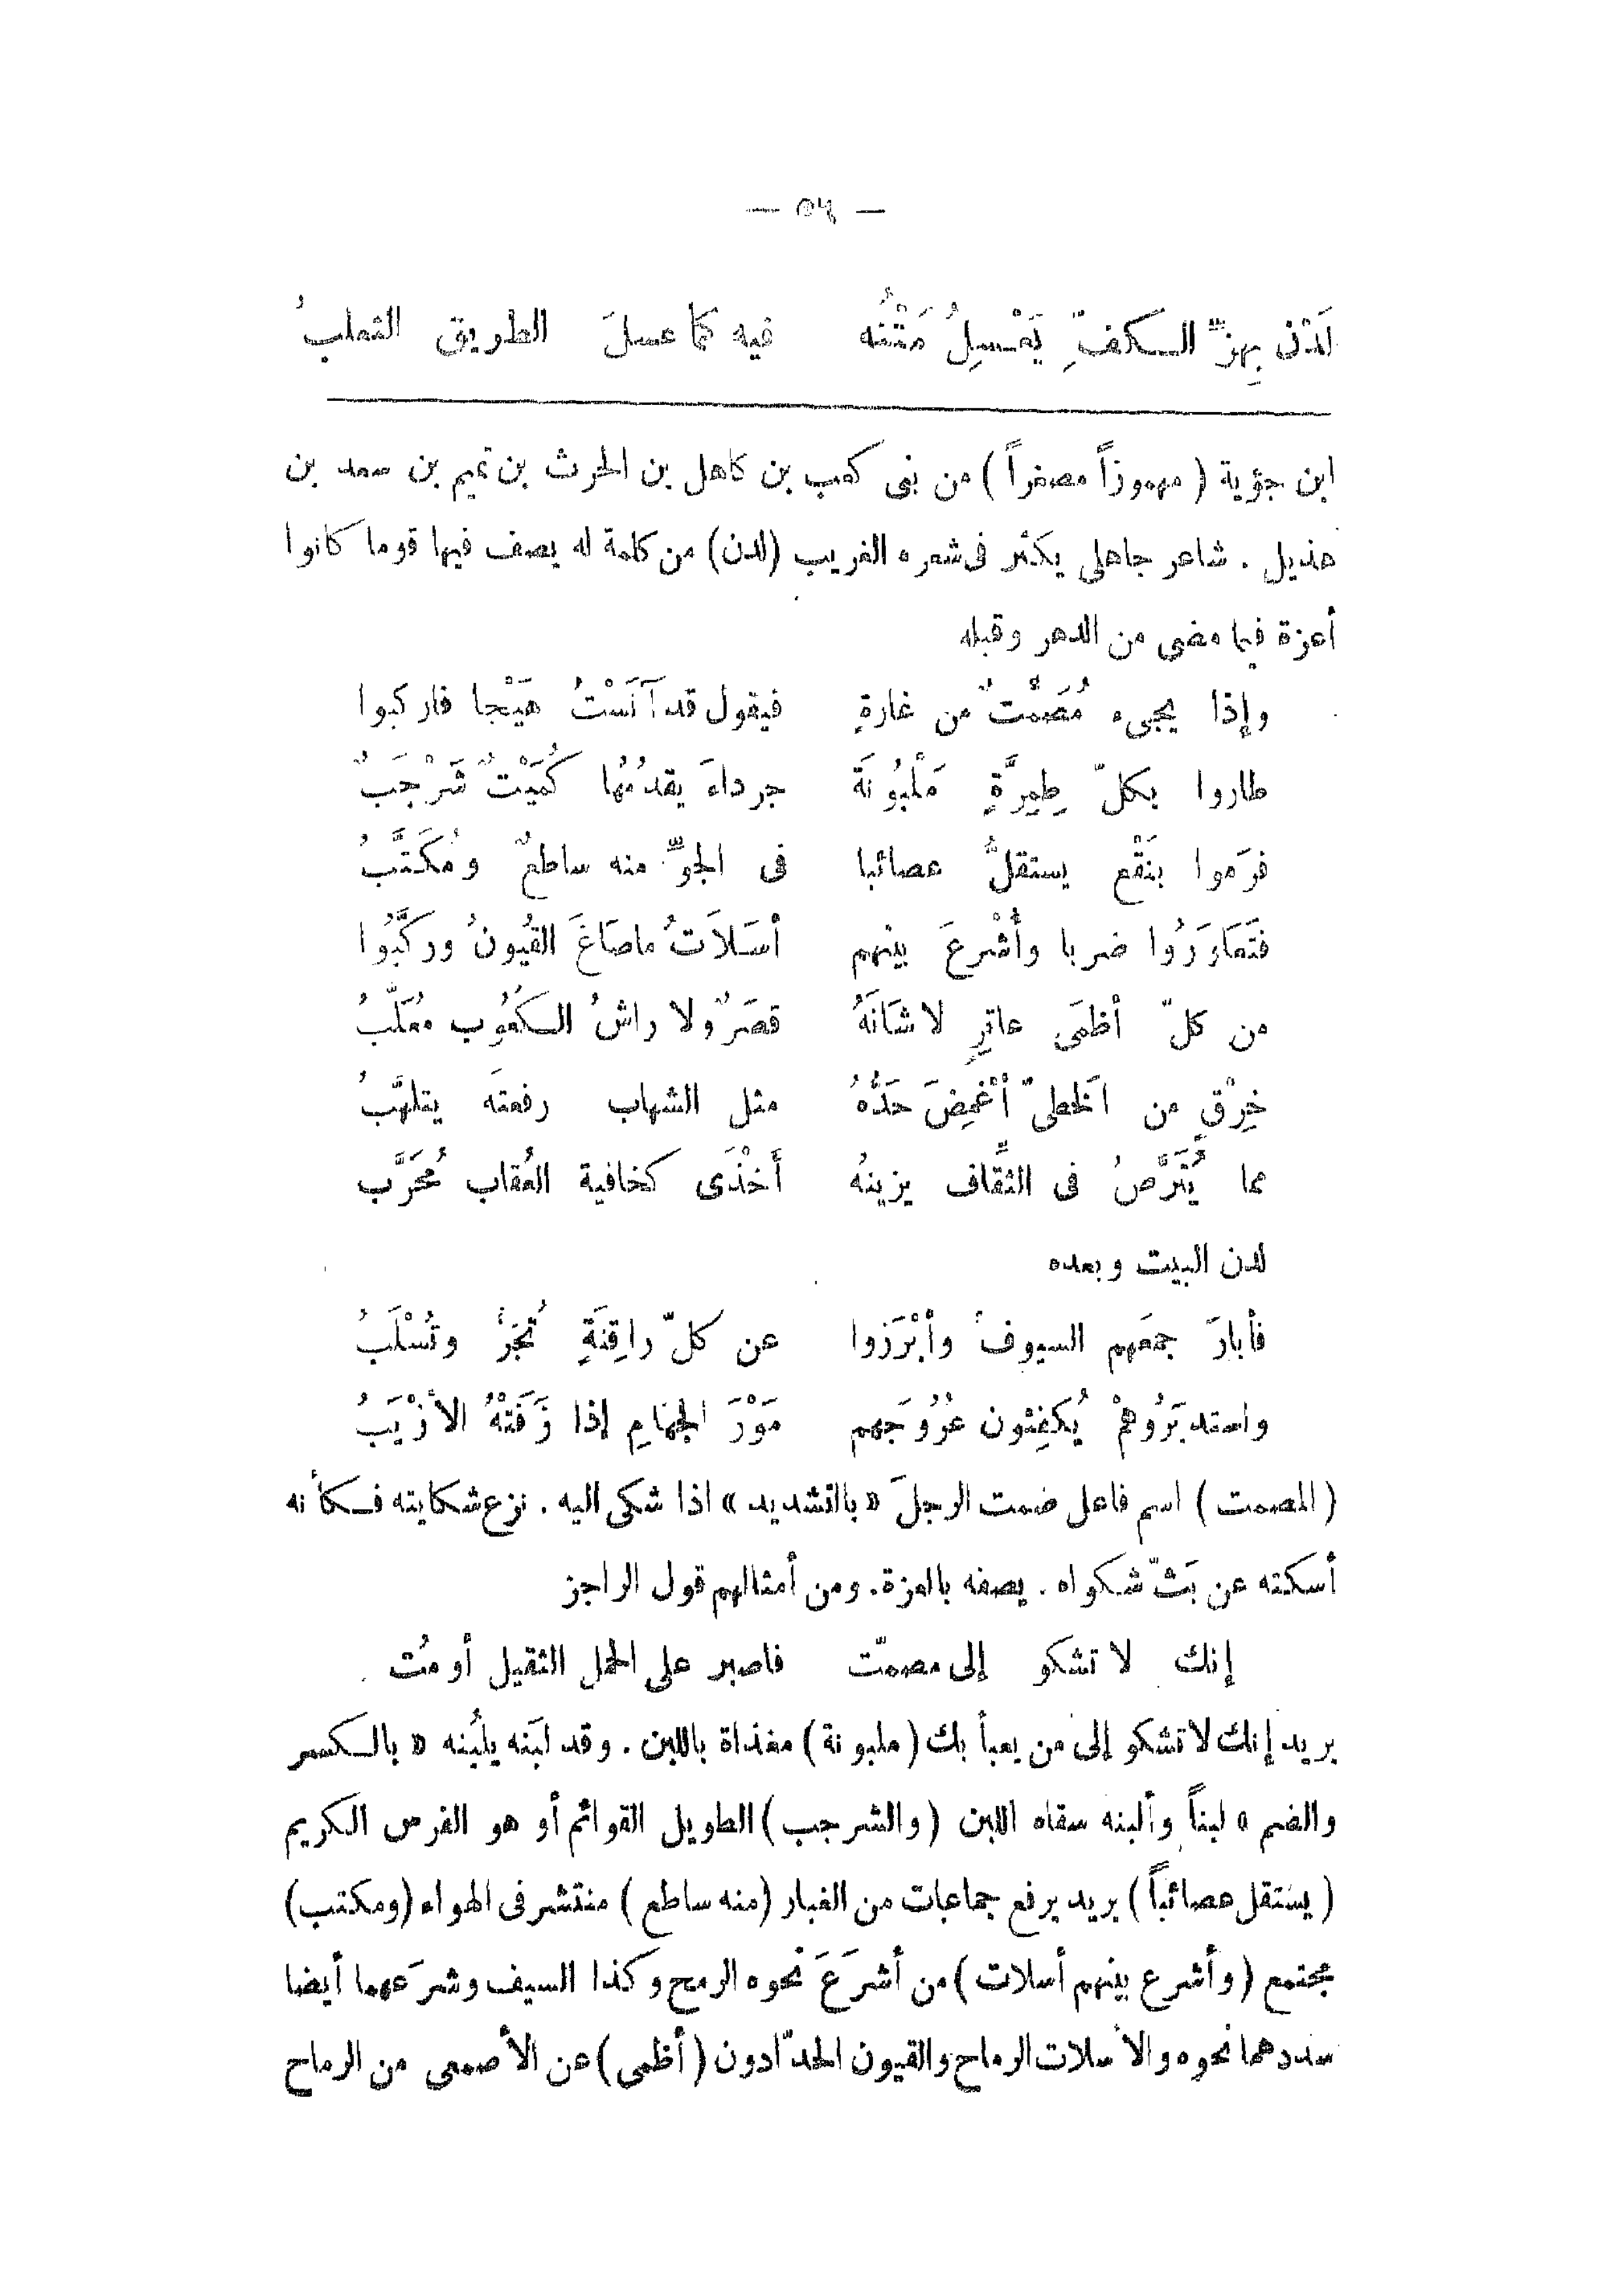 — ٥٦ —
لَدْنٌ بِهزِّ الكفِّ يَعْسِلُ مَتْنُه فيه كما عسلَ الطريق الثعلبُ
ابن جؤية (مهموزاً مصغراً) من بنى كعب بن كاهل بن الحرث بن تميم بن سعد بن
هذيل . شاعر جاهلى يكثر فى شعره الغريب (لدن) من كلمة له يصف فيها قوما كانوا
أعزة فيما مضى من الدهر وقبله
وإذا يجىء مُصَمِّتٌ من غارةٍ فيقول قد آنَسْتُ هَيْجا فاركبوا
طاروا بكلّ طِمِرَّةٍ مَلْبُونَة جرداءَ يقدُمُها كُمَيْتٌ شَرْجَبُ
فرَموا بنَقْع يستقلُّ عصائبا فى الجوِّ منه ساطعٌ ومُكَتَّبُ
فتَعَاوَرُوا ضربا وأُشْرعَ بينهم أسَلاَتُ ماصَاغَ القيُونُ وركَّبُوا
من كلّ أظمَى عاترٍ لاشَانَهُ قصَرٌ ولا راشُ الكعُوب معَلَّبُ
خِرْقٍ من الَخطىّ أُغْمِضَ حَدُّهُ مثل الشهاب رفعتَه يتلهَّبُ
مما يُتَرَّصُ فى الثِّقاف يزينهُ أَخْذَى كخافية العُقاب مُحَرَّب
لدن البيت وبعده
فأبارَ جمعَهم السيوفُ وأبْرَزوا عن كلّ راقِنَةٍ تُجَرُّ وتُسْلَبُ
واستدبَرُوهمْ يُكفِئون عُرُوجَهم مَوْرَ الجهَامِ إذا زَفَتْهُ الأزْيَبُ
(المصمت) اسم فاعل صمت الرجلَ «بالتشديد» اذا شكى اليه . نزع شكايته فكأنه
أسكته عن بَثّ شكواه . يصفه بالعزة. ومن أمثالهم قول الراجز
إنك لا تشكو إلى مصمّت فاصبر على الحمل الثقيل أو مُت
يريد إنك لا تشكو إلى من يعبأ بك (ملبونة) مغذاة باللبن . وقد لبَنه يلبُنه «بالكسر
والضم» لبناً وألبنه سقاه اللبن (والشرجب) الطويل القوائم أو هو الفرس الكريم
(يستقل عصائباً) يريد يرفع جماعات من الغبار (منه ساطع) منتشر فى الهواء (ومكتب)
مجتمع (وأشرع بينهم أسلات) من أشرَعَ نحوه الرمح وكذا السيف وشرَعهما أيضا
سددهما نحوه والأسلات الرماح والقيون الحدّادون (أظمى) عن الأصمعى من الرماح